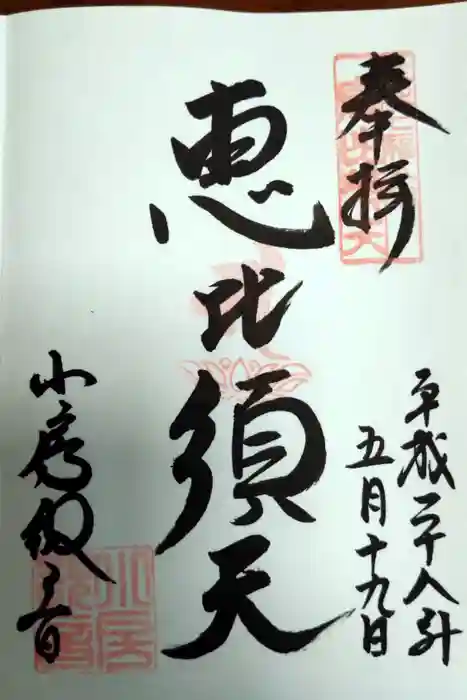 奉拝
平成二十八年
五月十九日
恵比須天
小房観音